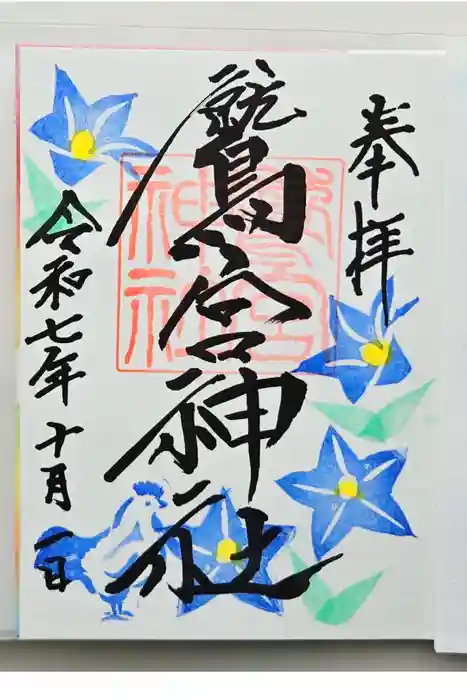 奉拝
鷲宮神社
鷲宮
神社
令和七年十月一日